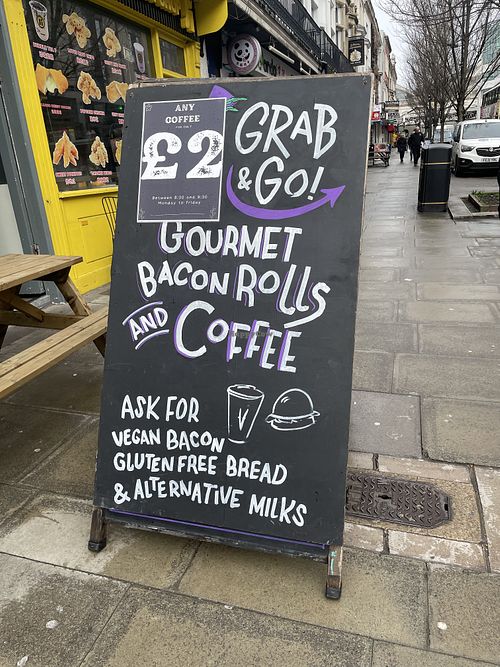 ANY
COFFEE
FOR ONLY
£2
Between 8:30 and 9:30
Monday to Friday
GRAB
& GO!
GOURMET
BACON ROLLS
AND COFFEE
ASK FOR
VEGAN BACON
GLUTEN FREE BREAD
& ALTERNATIVE MILKS